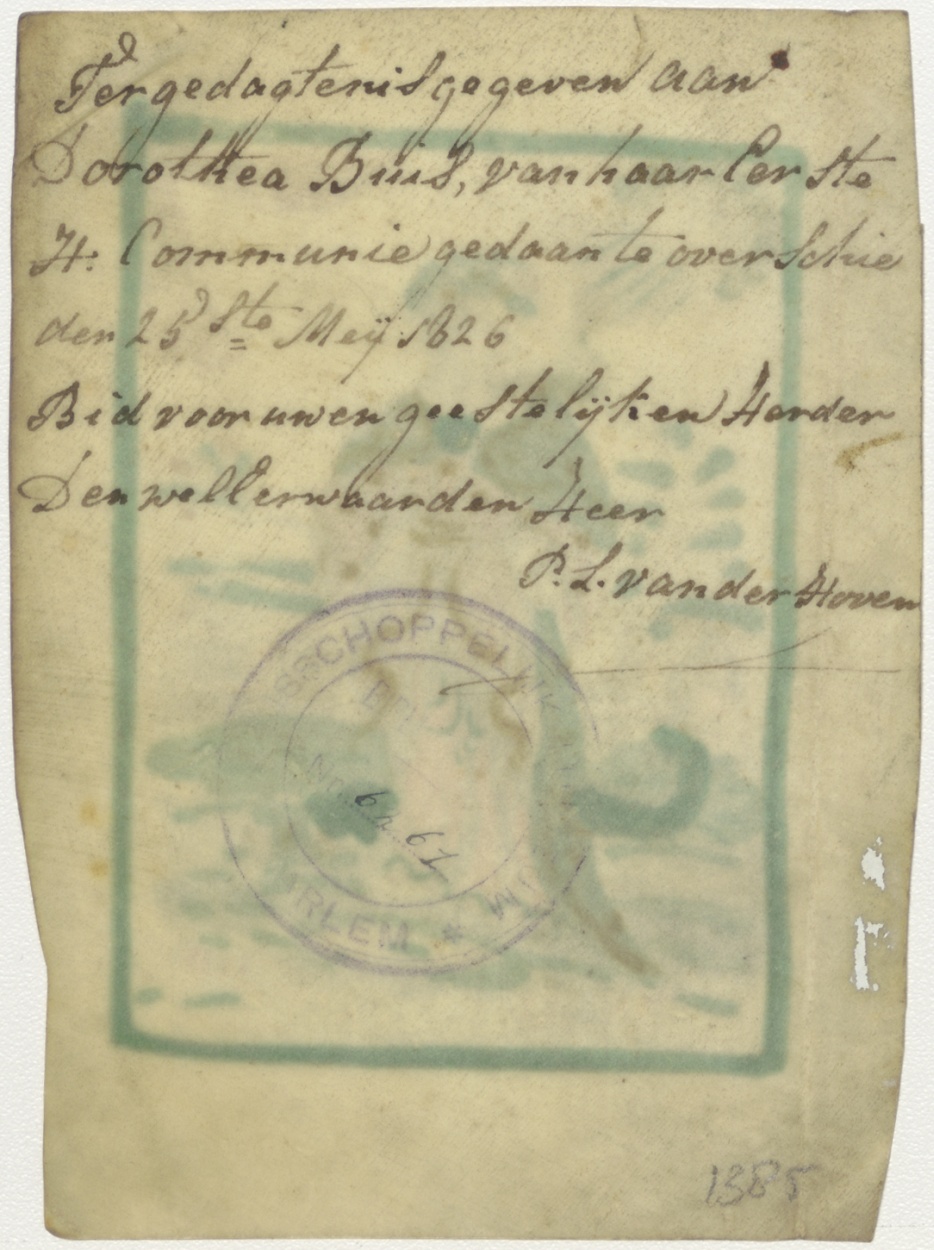 Ter gedagtenis gegeven aan
Dorothea Buis, van haar Eerste
H: Communie gedaan te overschie
den 25ste Meÿ 1826
Bid voor uwen geestelijken Herder
Den wellEerwaarden Heer
P. L. van der Hoven
BISSCHOPPELIJK
No.
6a 61
1385